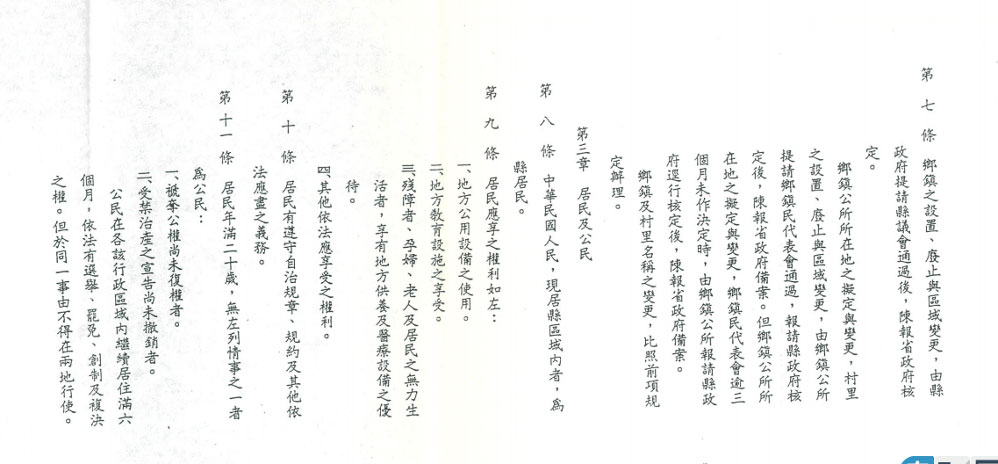 第七條　鄉鎮之設置、廢止與區域變更，由縣
政府提請縣議會通過後，陳報省政府核
定。
鄉鎮公所所在地之擬定與變更，村里
之設置、廢止與區域變更，由鄉鎮公所
提請鄉鎮民代表會通過，報請縣政府核
定後，陳報省政府備案。但鄉鎮公所所
在地之擬定與變更，鄉鎮民代表會逾三
個月未作決定時，由鄉鎮公所報請縣政
府逕行核定後，陳報省政府備案。
鄉鎮及村里名稱之變更，比照前項規
定辦理。
第三章　居民及公民
第八條　中華民國人民，現居縣區域內者，為
縣居民。
第九條　居民應享之權利如左：
一、地方公用設備之使用。
二、地方教育設施之享受。
三、殘障者、孕婦、老人及居民之無力生
活者，享有地方供養及醫療設備之優
待。
四、其他依法應享受之權利。
第十條　居民有遵守自治規章、規約及其他依
法應盡之義務。
第十一條　居民年滿二十歲，無左列情事之一者
為公民：
一、褫奪公權尚未復權者。
二、受禁治產之宣告尚未撤銷者。
公民在各該行政區域內繼續居住滿六
個月，依法有選舉、罷免、創制及複決
之權。但於同一事由不得在兩地行使。